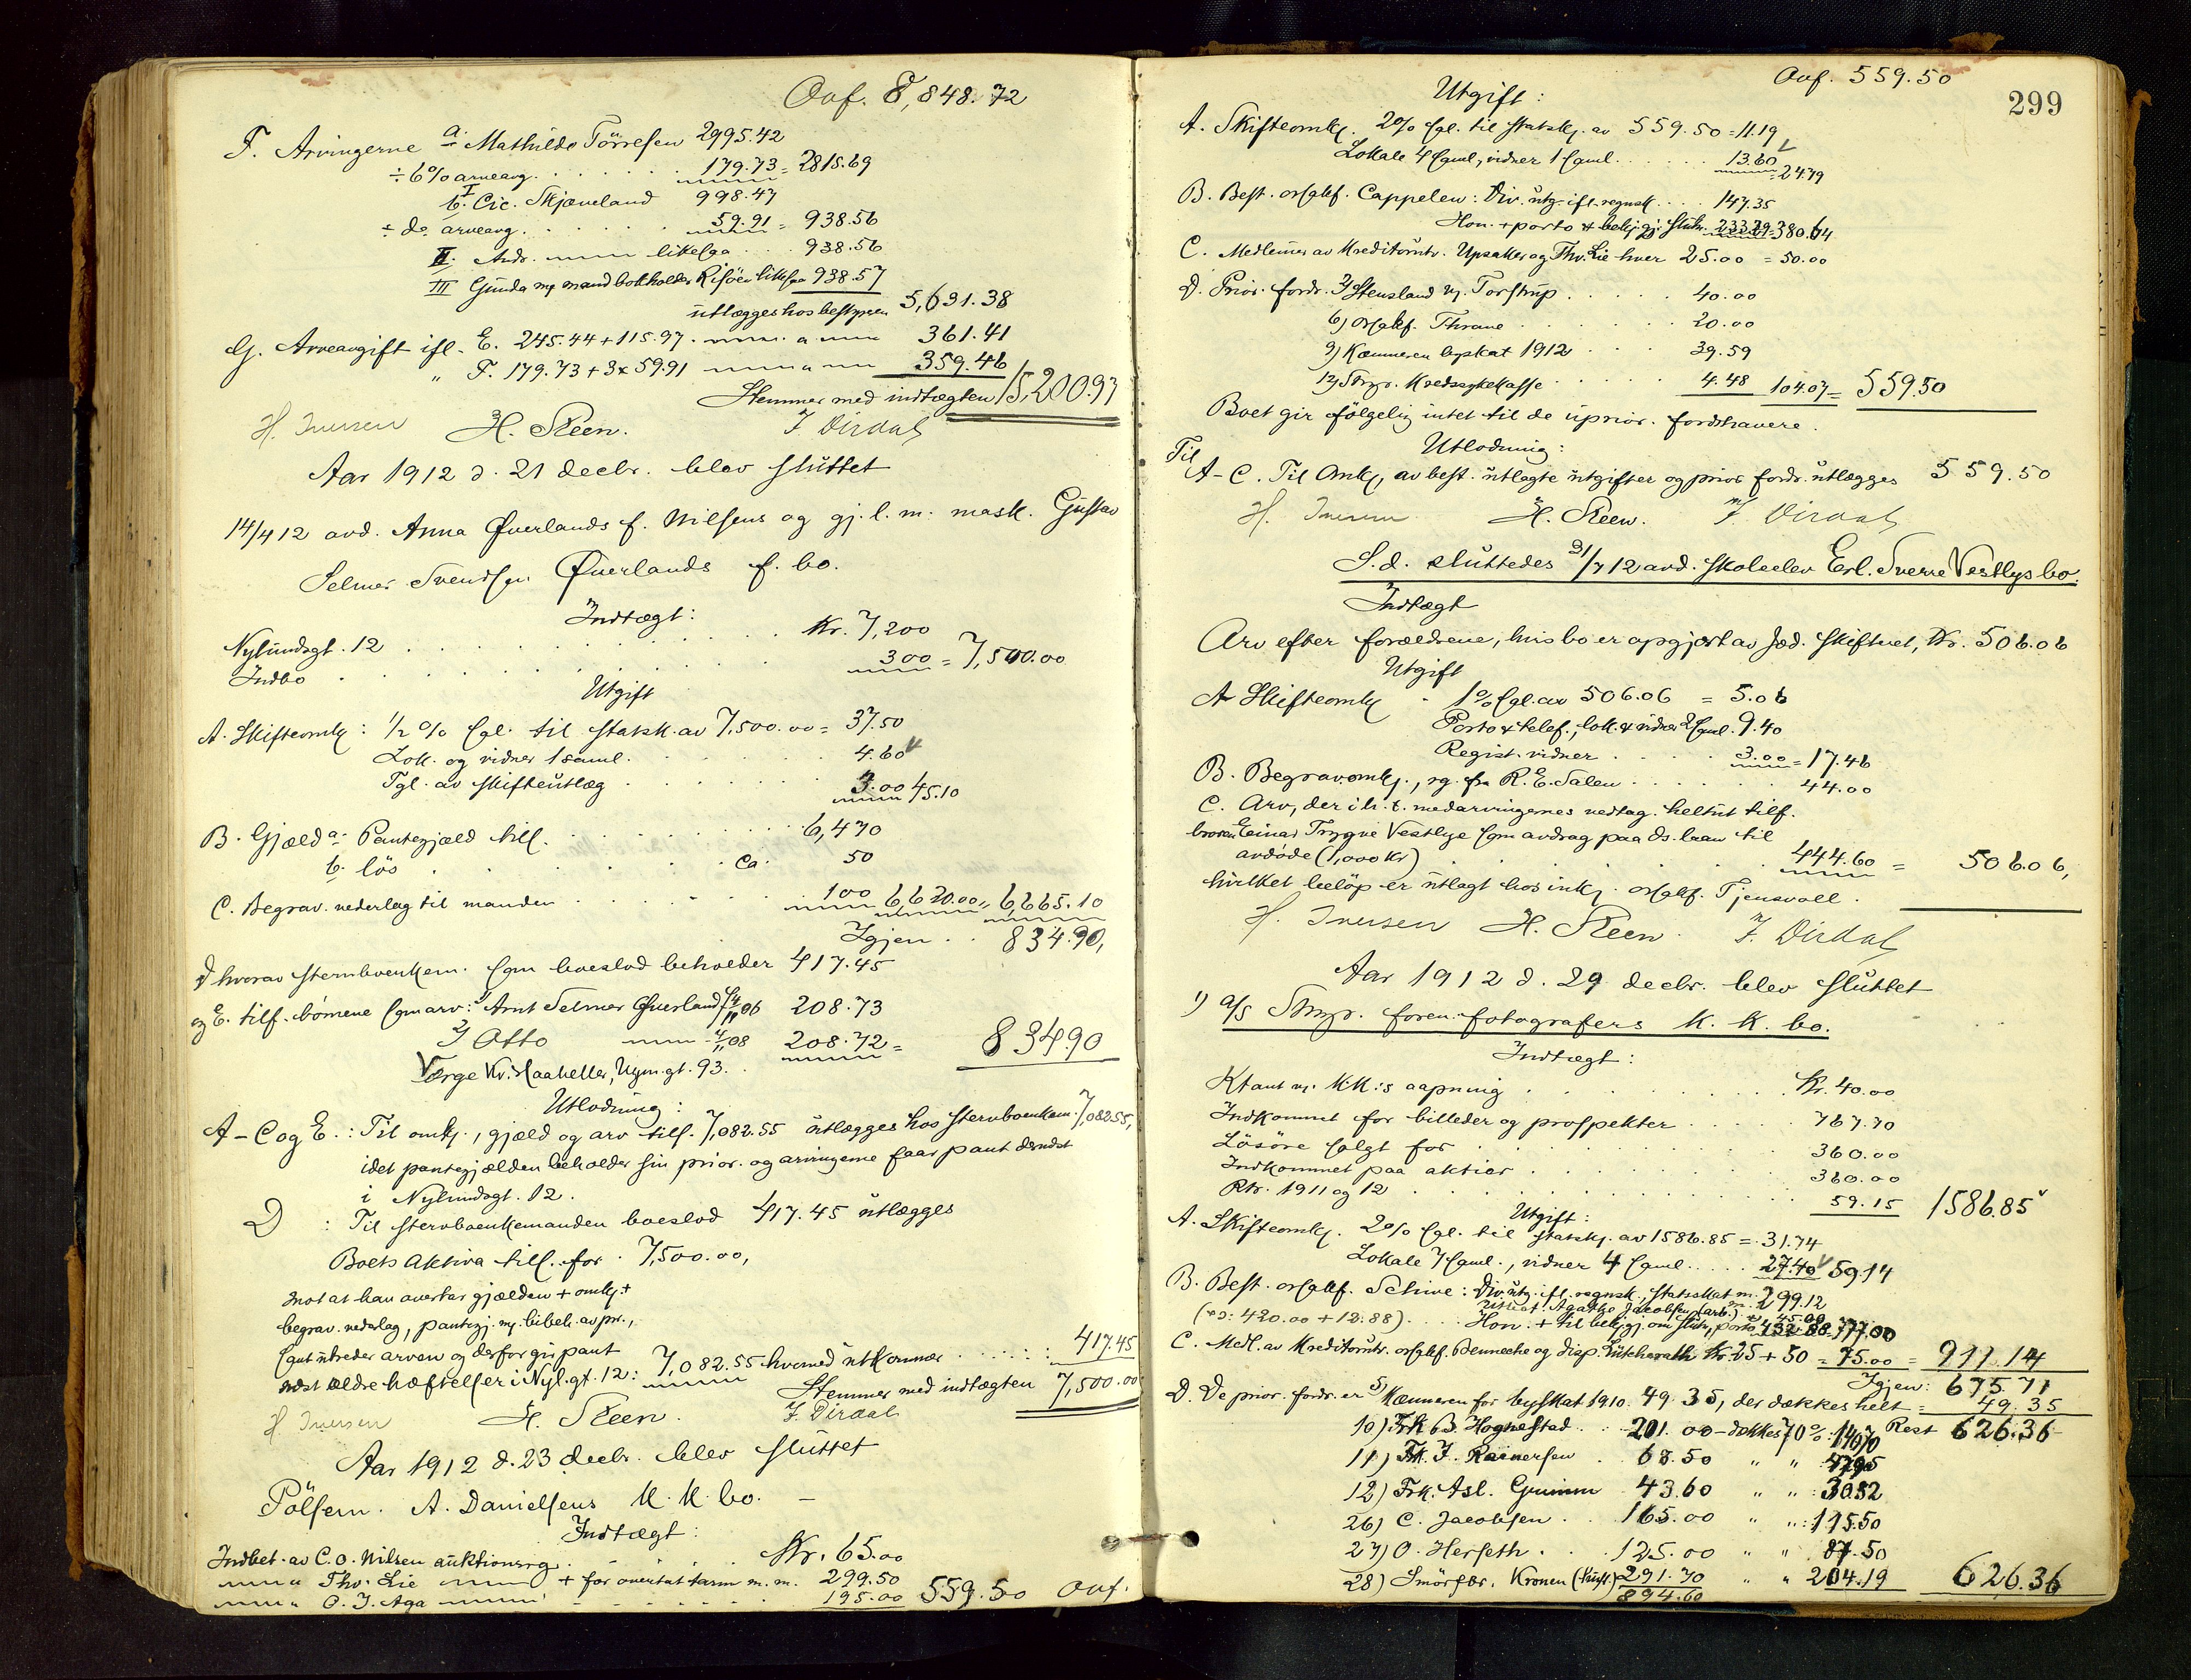 Ovf. 8,848.72
F. Arvingerne a. Mathilde Törresen 2995.42
÷ 6% arveavg. 179.73 = 2815.69
b. I Cic. Skjæveland 998.47
÷ do arveavg. 59.91 = 938.56
II. Andr. likesaa 938.56
III Gunda m/ mand bokholder Risöen likesaa 938.57
utlægges hos bestyreren 5,631.38
G. Arveavgift ifl. E. 245.44 + 115.97 361.41
" F. 179.73 + 3 x 59.91 359.46
Stemmer med indtægten 15,200.97
H. Iversen H. Steen. J. Dirdal
Aar 1912 d. 21 decbr. blev sluttet
14/4 12 avd. Anna Øverlands f. Nilsens og gj.l.m. mask. Gustav
Selmer Svendsen Øverlands f. bo.
Indtægt:
Nylundsgt. 12 Kr. 7,200
Indbo 300 = 7,500.00
Utgift
A. Skifteomk: 1/2 % sgl. til statsk. av 7,500.00 = 37.50
Lok. og vidner 1 saml. 4.60
Tgl. av skifteutlæg 3.00 45.10
B. Gjæld a. Pantegjæld till. 6,470
b. lös ca. 50
C. Begrav. vederlag til manden 100 6,620.00 = 6,665.10
Igjen 834.90,
D hvorav stervboenkem. som boeslod beholder 417.45
og E. tilf. börnene som arv: 1) Arnt Selmer Øverland 06 208.73
2) Otto 4/11 08 208.72 = 834.90
Værge Kv. Haaheller, Nym.gt. 93.
Utlodning:
A-C og E.: Til omk., gjæld og arv till. 7,082.55 utlægges hos stervboenkem. 7,082.55,
idet pantegjælden beholder sin prior. og arvingerne faar pant dernæst
i Nylundsgt. 12.
D : Til stervboenkemanden boeslod 417.45 utlægges
Boets aktiva till. for 7,500.00,
mot at han overtar gjælden + omk. +
begrav. vederlag, pantegj. m/ bibeh. av pr.,
samt utreder arven og derfor gir pant
næst ældre hæftelser i Nyl.gt. 12: 7,082.55 hvormed utkommer 417.45
Stemmer med indtægten 7,500.00
H. Iversen H. Steen. J. Dirdal
Aar 1912 d. 23 decbr. blev sluttet
Pölsem. A. Danielsens K.K. bo. –
Indtægt:
Indbet. av C.O. Nilsen auktionsrg. Kr. 65.00
" Thv. Lie + for overtat m.m. 299.50
" O.J. Aga 195.00 559.50 Ovf.
299
Ovf. 559.50
Utgift:
A. Skifteomk. 2% sgl. til statsk. av 559.50 = 11.19
Lokale 4 saml., vidner 1 saml. 13.60 = 24.79
B. Best. orsakf. Cappelen: Div. utg. ifl. regnsk. 147.35
Hon. + porto & bekjgj. slutn. 233.29 = 380.64
C. Medlemmer av Kreditorutv. Upsaker og Thv. Lie hver 25.00 = 50.00
D. Prior. fordr. 3) Stensland v/ Torstrup 40.00
6) orsakf. Thrane 20.00
9) Kæmneren byskat 1912 39.59
12) Stvgr. Kredssykekasse 4.48 104.07 = 559.50
Boet gir følgelig intet til de uprior. fordrhavere.
Utlodning:
Til A-C. Til omk., av best. utlagte utgifter og prior. fordr. utlægges 559.50
H. Iversen H. Steen. J. Dirdal
S.d. sluttedes 31/7 12 avd. skoleelev Erl. Sverre Vestlys bo.
Indtægt
Arv efter forældrene, hvis bo er opgjort av Jæd. skifteret, Kr. 506.06
Utgift
A Skifteomk 1% sgl. av 506.06 = 5.06
Porto & telef., lok. & vidner 2 saml. 9.40
Regist. vidner 3.00 = 17.46
B. Begrav.omk., rg. fra R.E. Salen 44.00
C. Arv, der i h.t. medarvingernes vedtag. heltut tilf.
broren Einar Trygve Vestlye som avdrag paa ds. laan til
avdøde (1,000 Kr) 444.60 = 506.06,
hvilket beløp er utlagt hos ink. orsakf. Tjensvoll.
H. Iversen H. Steen. J. Dirdal
Aar 1912 d. 29 decbr. blev sluttet
1) A/S Stvgr. foren. fotografers K.K. bo.
Indtægt:
Ktant v. K.K.:s aapning Kr. 40.00
Indkommet for billeder og prospekter 767.70
Lösöre solgt for 360.00
Indkommet paa aktier 360.00
Rtr. 1911 og 12 59.15 1586.85
Utgift:
A. Skifteomk. 2% sgl. til statsk. av 1586.85 = 31.74
Lokale 7 saml., vidner 4 saml. 27.40 59.14
B. Best. orsakf. Schive: Div. utg. ifl. regnsk., statsskat m. 299.12
Agathe Jacobsen (arb.) m. 45.00
(o: 420.00 + 12.88) Hon. + til bekjgj. om slutn., porto 432.88 777.00
C. Medl. av Kreditorutv. orsakf. Benneche og disp. Lütcherath Kr. 25 + 50 = 75.00 = 911.14
Igjen: 675.71
D. De prior. fordr. er 5) Kæmneren for byskat 1910. 49.35, der dækkes helt = 49.35
10) Frk B. Hognestad 201.00 – dækkes 70%: 140.70 Rest 626.36
11) Frk. J. Rainersen 68.50 " " 47.95
12) Frk. Asl. Grimm 43.60 " " : 30.52
26) C. Jacobsen 165.00 " " : 115.50
27) O. Herseth 125.00 " " 87.50
28) Smörfor. Kronen (husl.) 291.70 " " 204.19 626.36
894.60